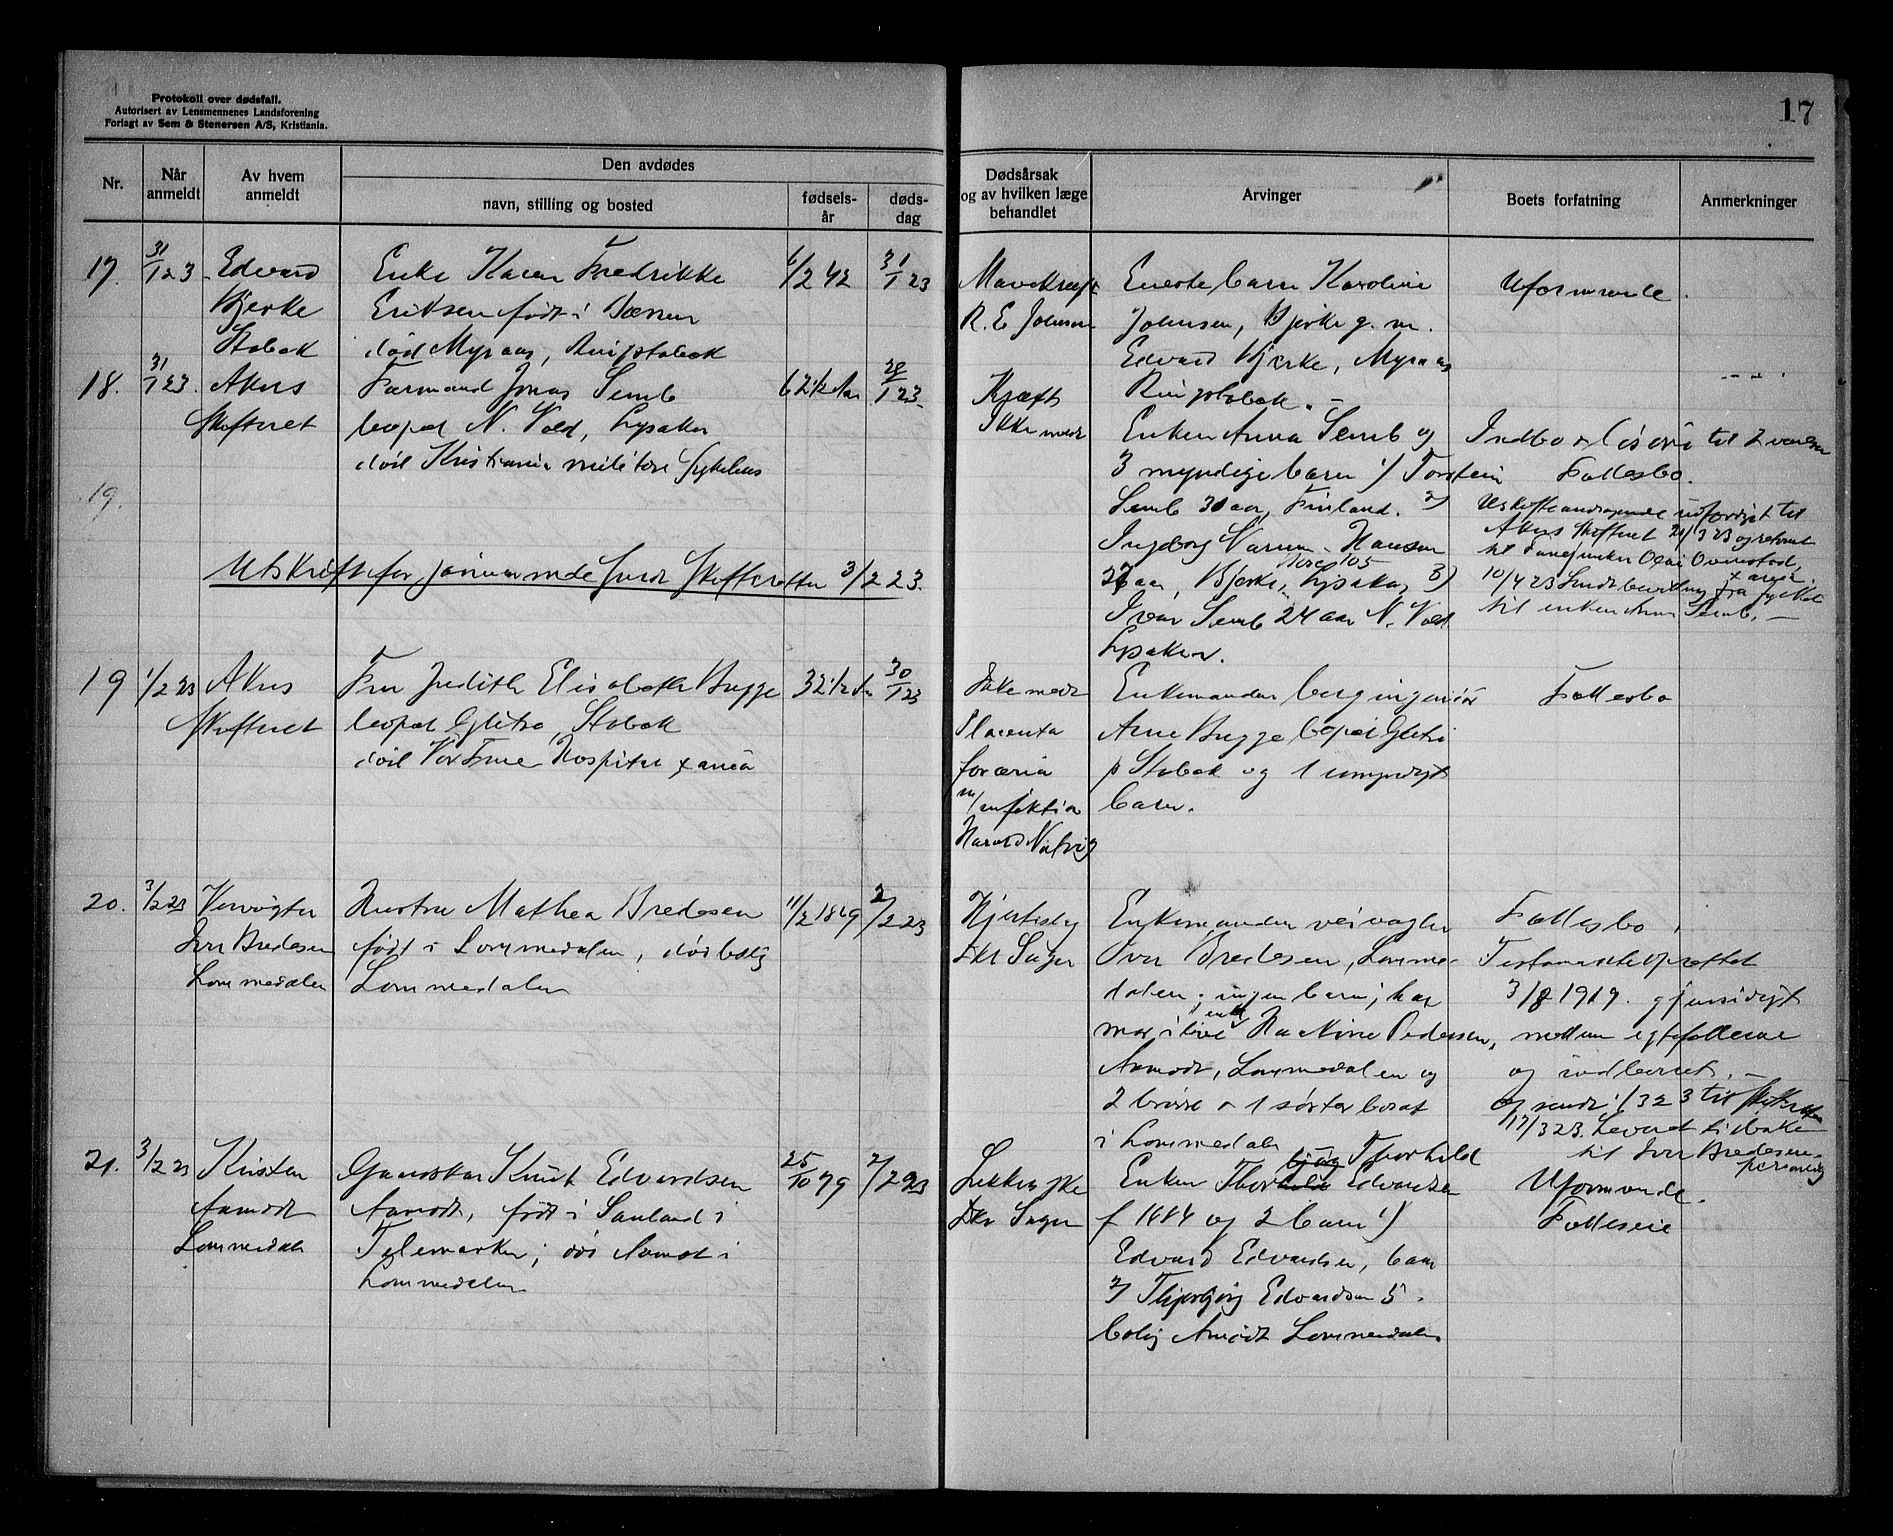 Protokoll over dødsfall.
Autorisert av Lensmennenes Landsforening
Forlagt av Sem & Stenersen A/S, Kristiania.
17
Nr.
Når anmeldt
Av hvem anmeldt
Den avdødes
navn, stilling og bosted
fødsels-år
døds-dag
Dødsårsak og av hvilken læge behandlet
Arvinger
Boets forfatning
Anmerkninger
17. 31/1 23 Edvard Enke Karen Fredrikke 6/2 42 31/1 23
Bjerke Eriksen født i Bærum
Stabæk død Myraas, Ringstabæk
Mavekræft
R. E. Johnsen
Eneste barn Karoline
Johnsen, Bjerke g. m.
Edvard Bjerke, Myraas
Ringstabæk. –
Uformuende.
18. 31/1 23. Akers Formand Jonas Semb 62 1/2 Aar 28/1 23.
Skifteret bopæl N. Vold, Lysaker
død Kristiania militære sykehus
Kræft
Ikke medt
Enken Anna Semb og
3 myndige barn 1) Torstein
Semb 30 aar, Finland. 2)
Ingborg Hansen
27 aar, Bjerke, Lysaker, 3)
Ivar Semb 24 aar N. Vold
Lysaker.
Indbo til
Fællesbo.
Akers Skifteret 21/3 23 og
10/4 23 Sendt bevilling fra fylket
til enken Anna Semb. –
19.
Utskrift for januar md. sendt Skifteretten 3/2 23.
19 1/2 23 Akers Fru Judith Elisabeth Bugge 32 1/2 Aar 30/1 23
Skifteret bopæl Gletra, Stabæk
død Vor Frue Hospital
Ikke medt
Placenta
m/ infektion
Harald Natvig
Enkemanden bergingeniør
Arne Bugge bopæl Gletra
p Stabæk og 1 umyndigt
barn.
Fællesbo
20. 3/2 23 Veivogter Hustru Mathea Bredesen 11/2 1869 2/2 23
Iver Bredesen født i Lommedalen, død bolig
Lommedalen Lommedalen
Hjertesyg
Dr Sager
Enkemanden veivogter
Iver Bredesen, Lomme-
dalen; ingen barn; har
mor i live Pedersen,
Aamodt, Lommedalen og
2 brødre o 1 søster bosat
i Lommedalen
Fællesbo
Testamente oprettet
3/8 1919. gjensidigt
mellem egtefællerne
og indleveret. –
Og sendt 1/3 23 til skifteretten
17/3 23. Leveret tilbake
til Iver Bredesen
personlig
21. 3/2 23 Kristen Gaardskar Knut Edvardsen 25/10 79 2/2 23
Aamodt Aamodt, født i Sauland i
Lommedalen Telemarken; død Aamot i
Lommedalen
Dr Sager
Thorhild
Enken Edvardsen
f 1884 og 2 barn 1)
Edvard Edvardsen,
2) Edvardsen 5.
bolig Amodt Lommedalen
Uformuende.
Fælleseie